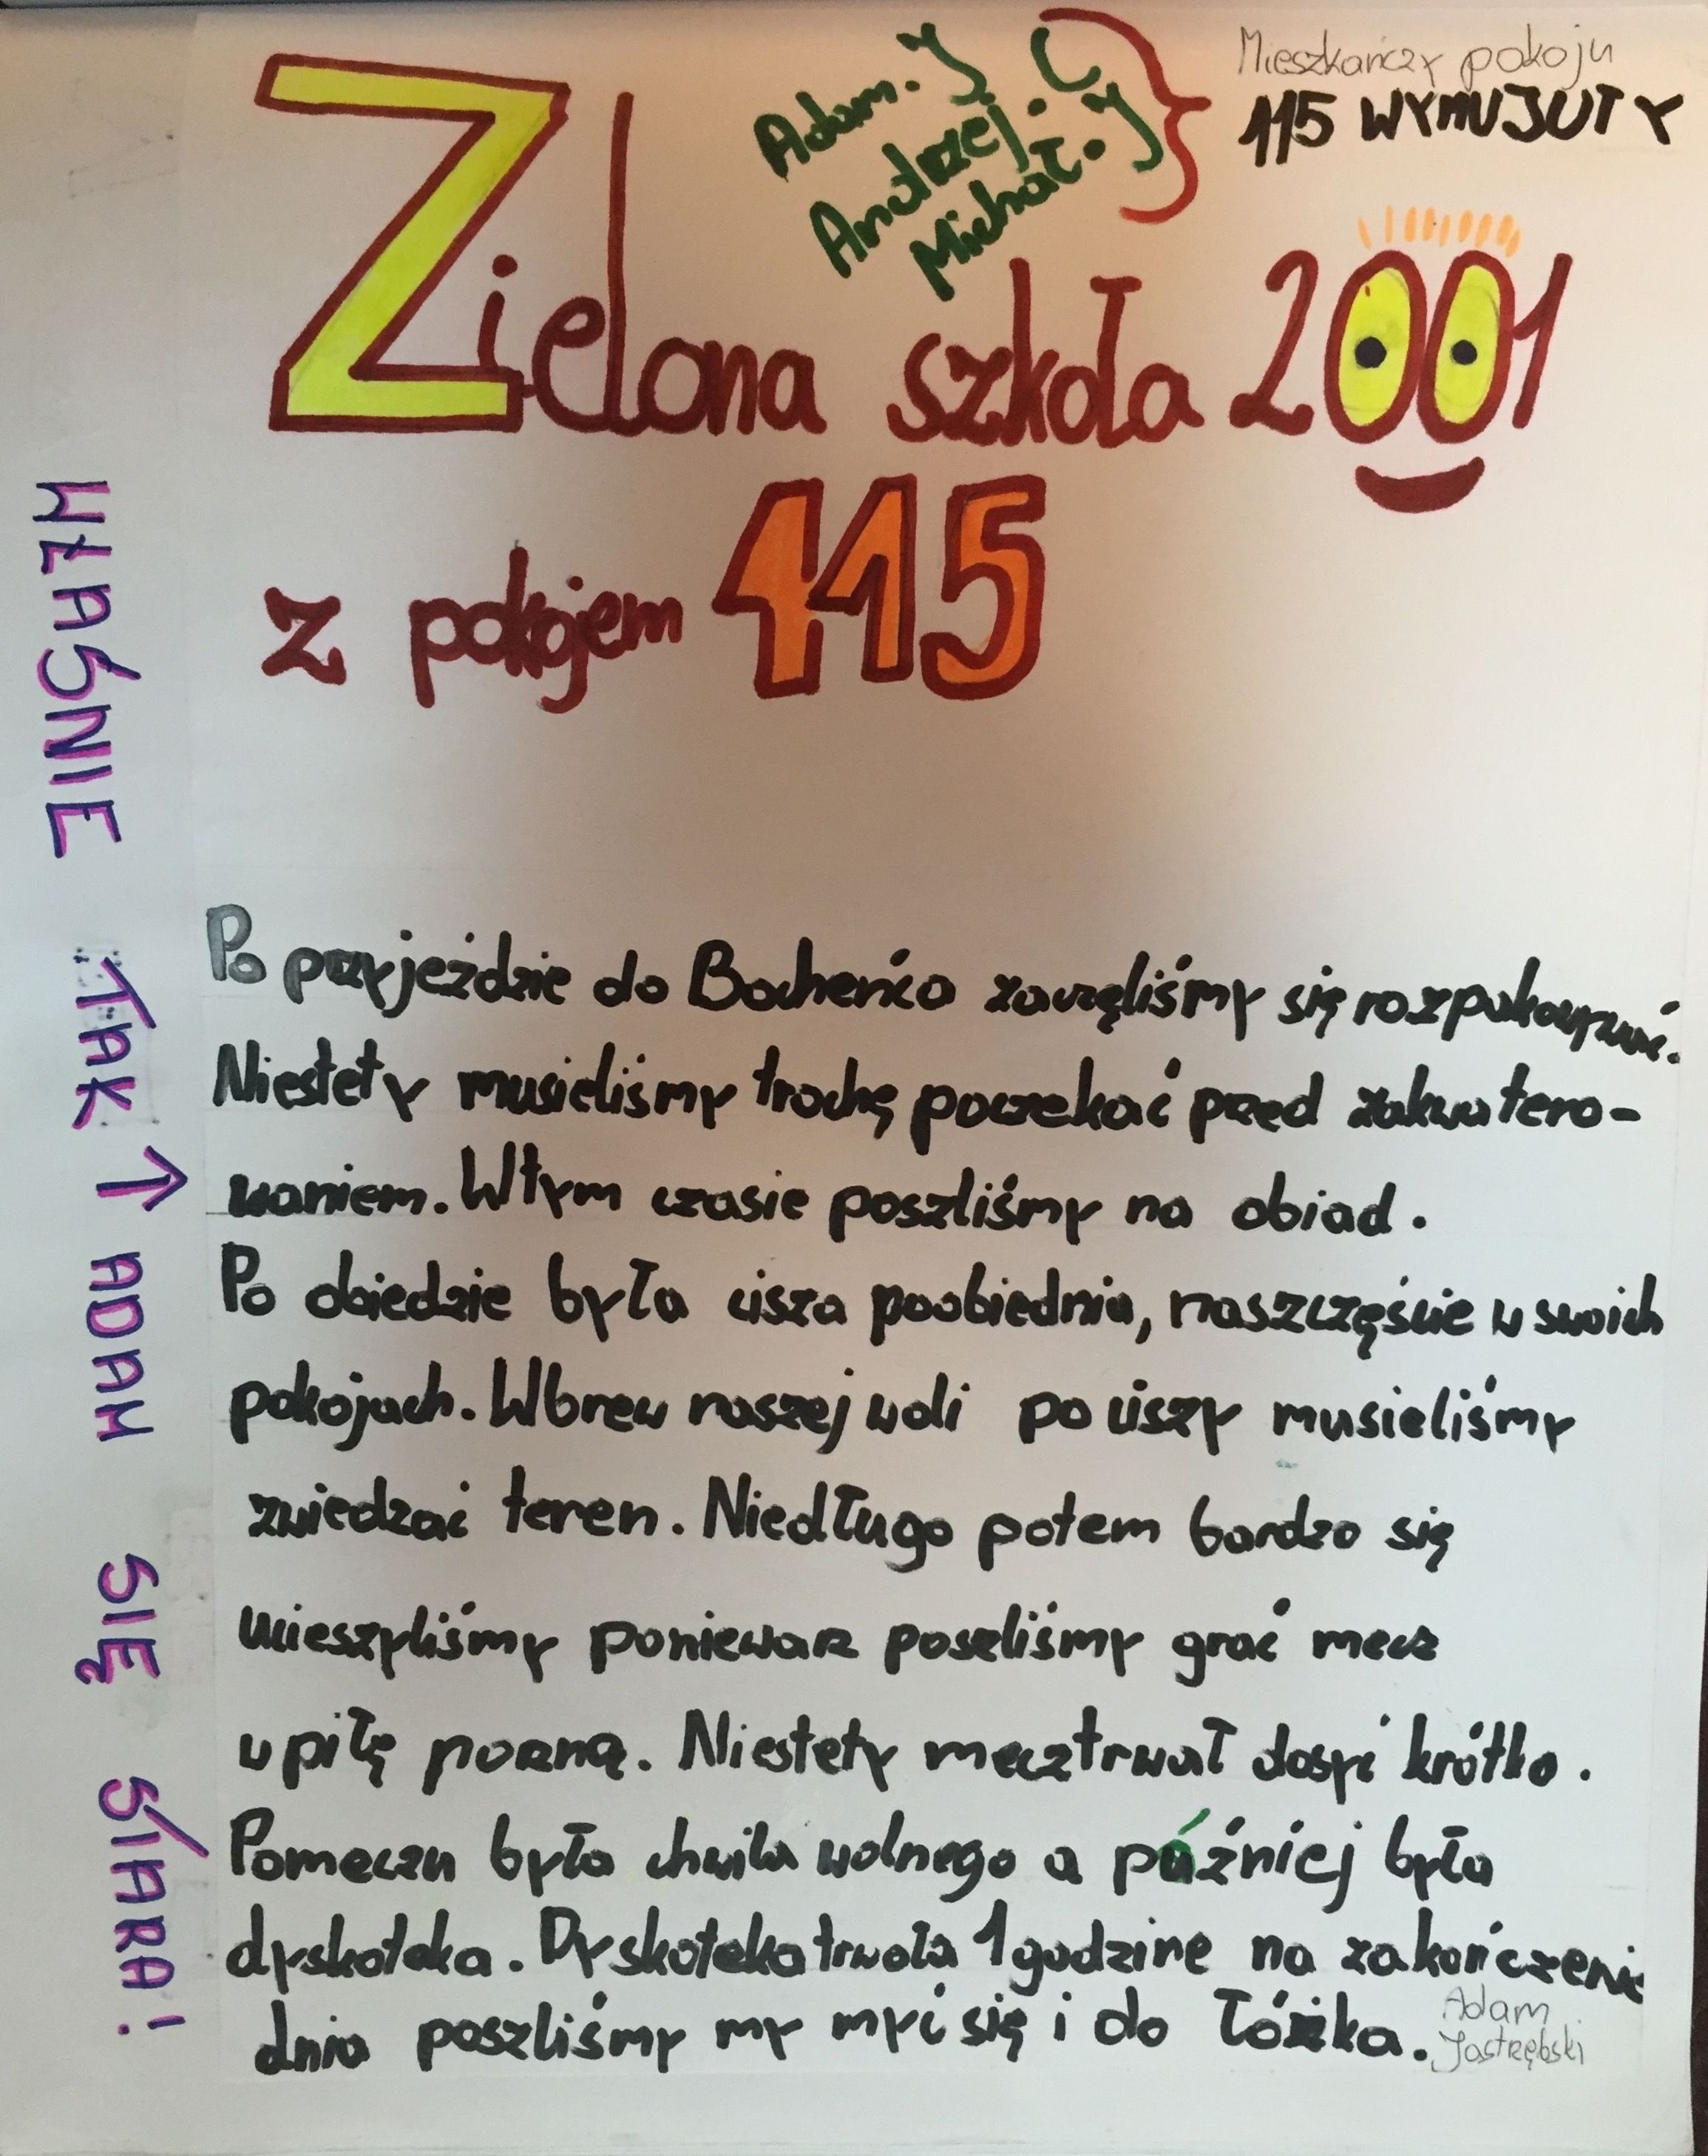 Adam. J
Andrzej. C
Michał. J
Mieszkańczy pokoju
115 WYMUJUTY
Zielona szkoła 2001
z pokojem 115
Po przyjeździe do Bocheńca zaczęliśmy się rozpakowywać.
Niestety musieliśmy trochę poczekać przed zakwatero-
waniem. Wtym czasie poszliśmy na obiad.
Po obiedzie była cisza poobiednia, naszczęście w swoich
pokojach. Wbrew naszej woli po ciszy musieliśmy
zwiedzać teren. Niedługo potem bardzo się
ucieszyliśmy poniewarz poszliśmy grać mecz
w piłę nozną. Niestety mecz trwał dosyć krótko.
Pomeczu było chwila wolnego a puźniej była
dyskoteka. Dyskoteka trwała 1 godzine na zakończenie
dnia poszliśmy my myć się i do łóżka.
Adam
Jastrzębski
WŁAŚNIE TAK ↑ ADAM SIĘ STARA!